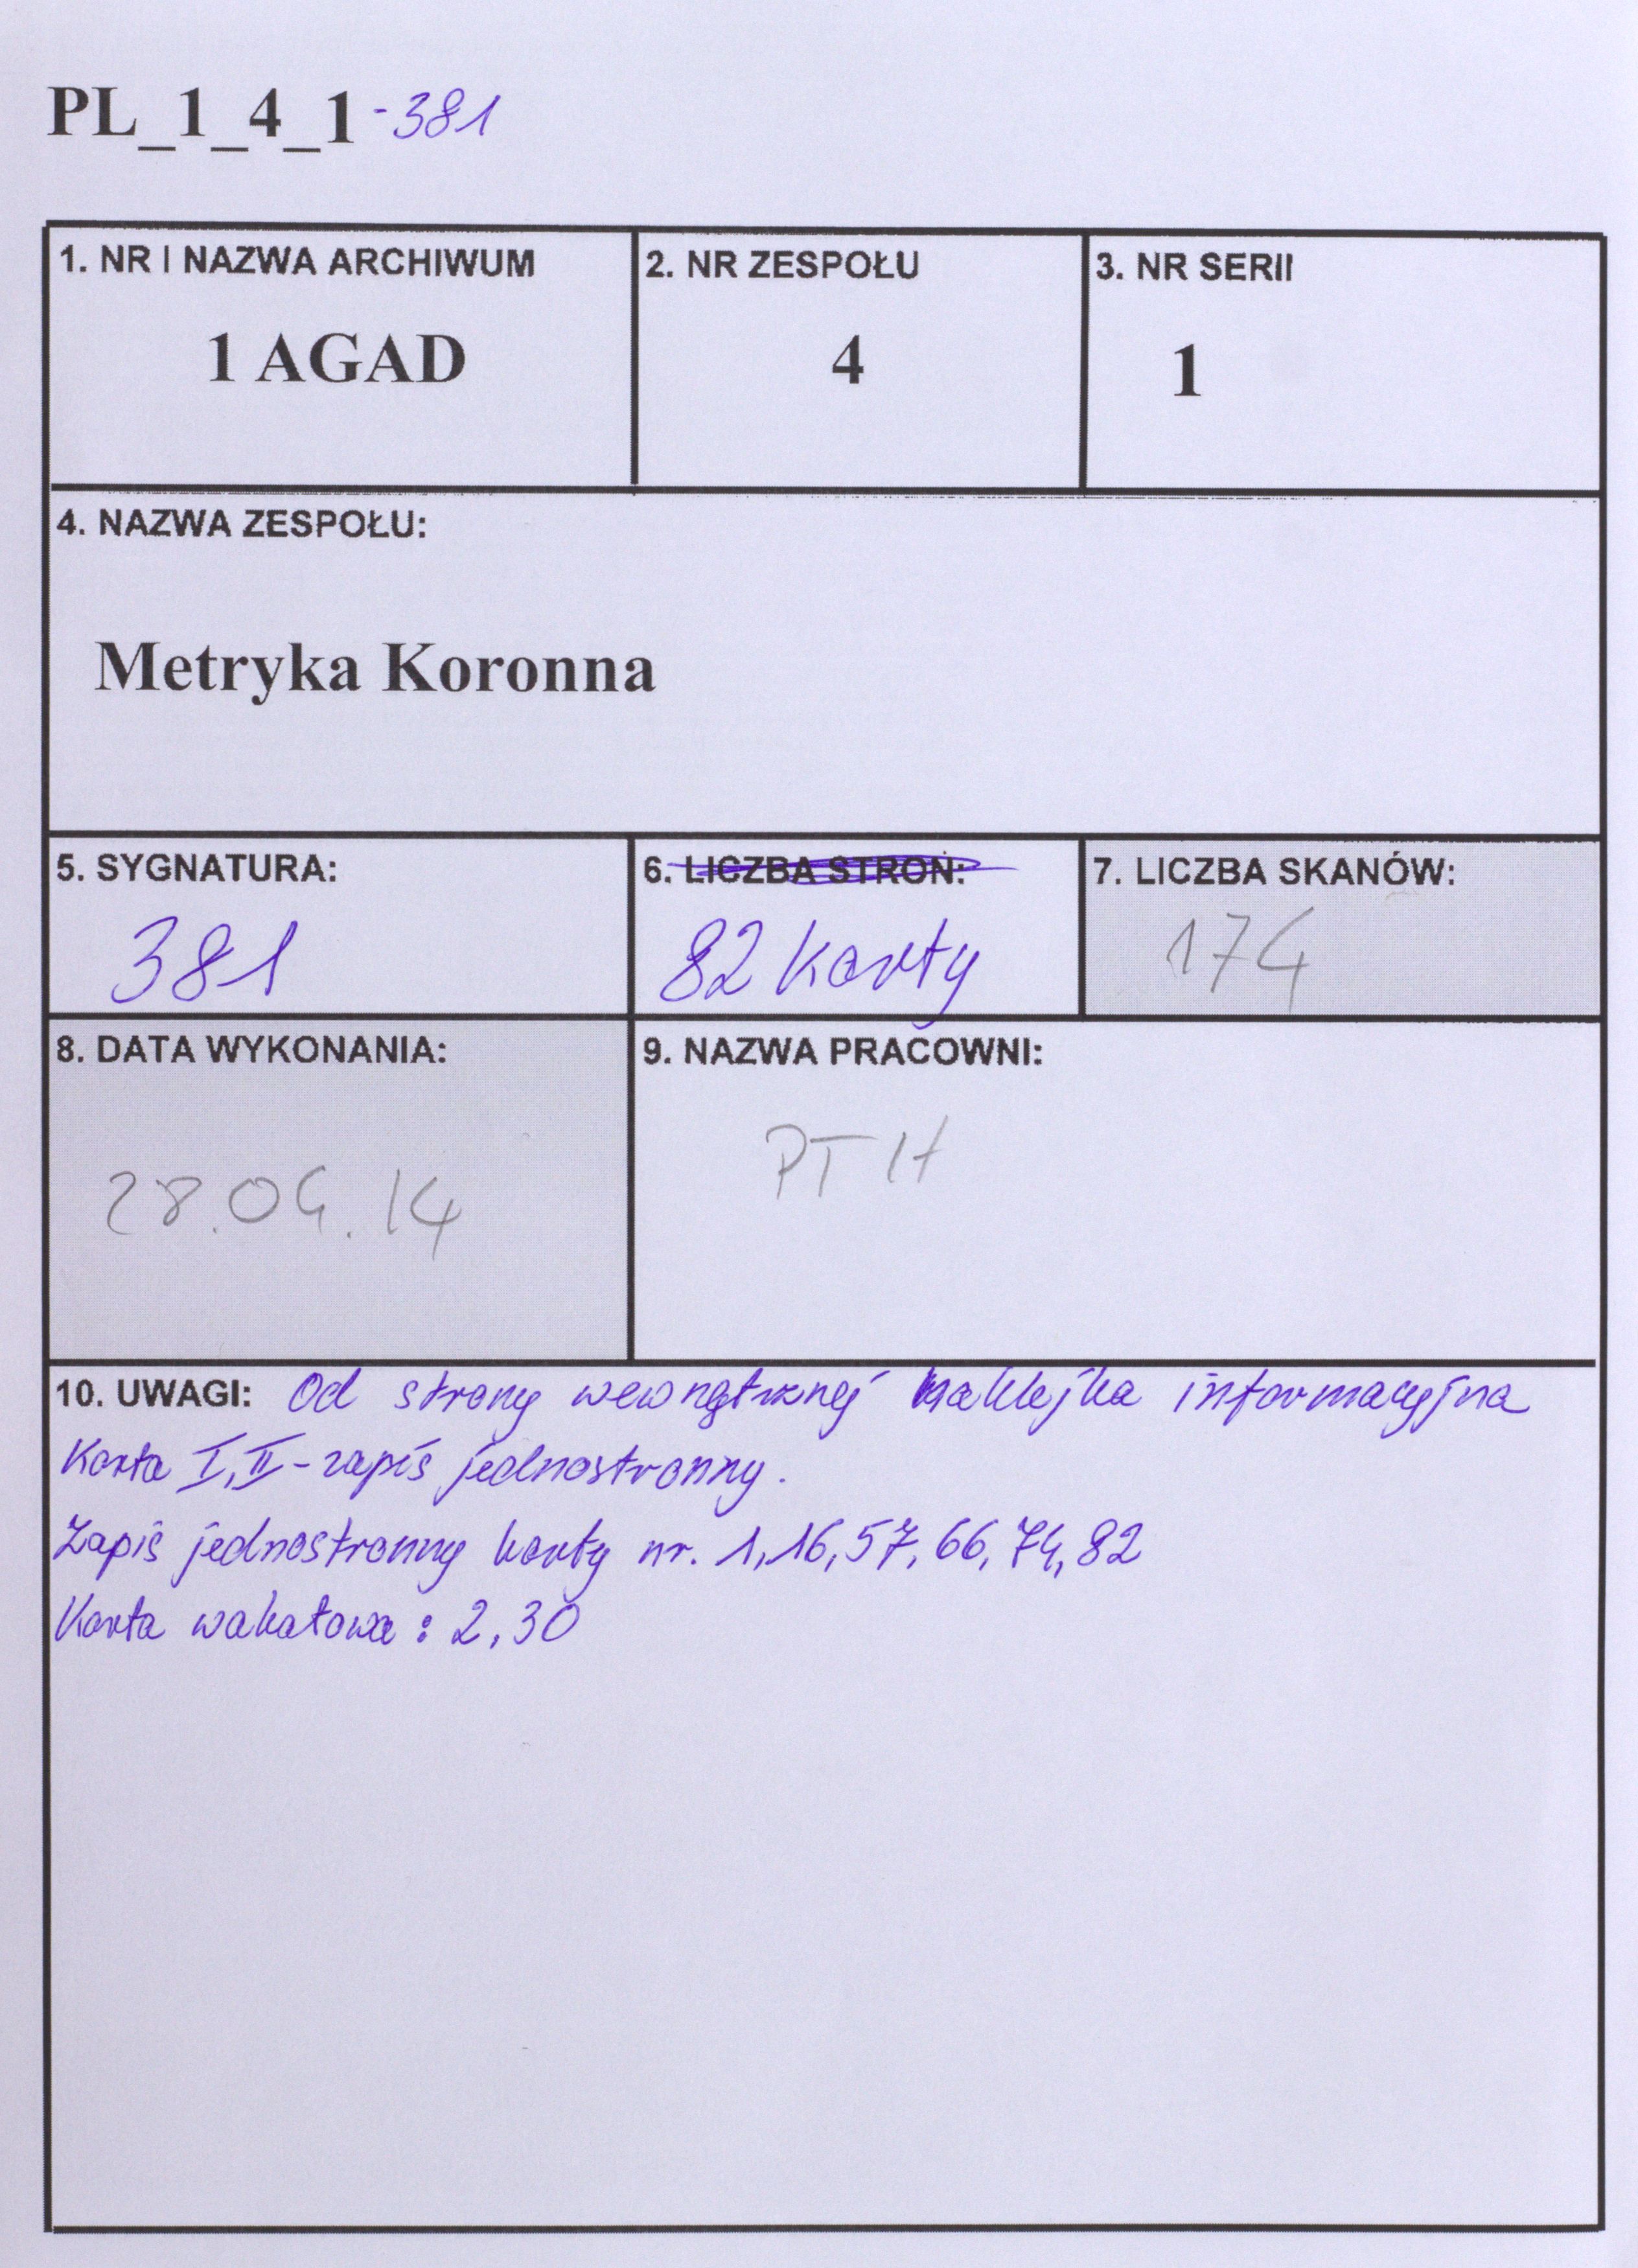 PL_1_4_1-381
1. NR I NAZWA ARCHIWUM
1 AGAD
2. NR ZESPOŁU
4
3. NR SERII
1
4. NAZWA ZESPOŁU:
Metryka Koronna
5. SYGNATURA:
381
6. LICZBA STRON:
82 karty
7. LICZBA SKANÓW:
174
8. DATA WYKONANIA:
28.04.14
9. NAZWA PRACOWNI:
PT H
10. UWAGI: Od strony wewnętrznej naklejka informacyjna
Karta I, II - zapis jednostronny.
Zapis jednostronny karty nr. 1, 16, 57, 66, 74, 82
Karta wakatowa : 2, 30